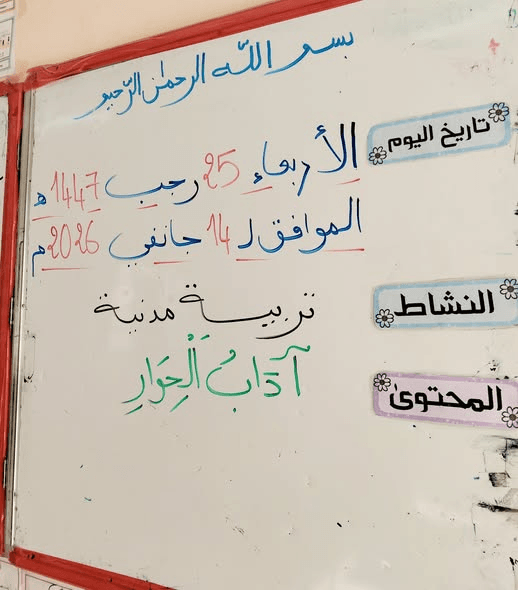 بسم الله الرحمان الرحيم
تاريخ اليوم الأربعاء 25 رجب 1447 ه
الموافق لـ 14 جانفي 2026 م
النشاط تربية مدنية
المحتوى آدَابُ الْحِوَارِ